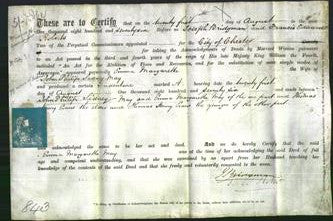 These are to Certify that on the twenty first day of August in the year
one thousand eight hundred and seventy six before us Joseph Bridgman and Francis
Two of the Perpetual Commissioners appointed for the City of Chester
for taking the acknowledgments of Deeds by Married Women pursuant
to an Act passed in the third and fourth years of the reign of His late Majesty King William the Fourth
intituled "An Act for the Abolition of Fines and Recoveries, and for the substitution of more simple modes
of Assurance, appeared personally Emma Margaretta the Wife
of John Philip Sidney May
and produced a certain Indenture marked A. bearing date the twenty first
day of August one thousand eight hundred and seventy six and made between
John Philip Sidney May and Emma Margaretta his wife of the one part and Thomas
the younger of the other part
and acknowledged the same to be her act and deed. And we do hereby Certify that the said
Emma Margaretta May was at the time of her acknowledging the said Deed of full
age and competent understanding, and that she was examined by us apart from her Husband, touching her
knowledge of the contents of the said Deed and that she freely and voluntarily consented to the same.
J Bridgman
8403